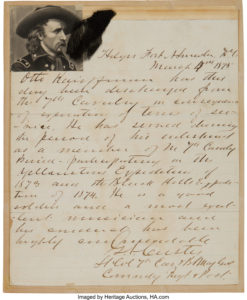 Hdqrs Fort A. Lincoln
March 4th 1875
Otto Hagemann has this
day been discharged from
the 7th Cavalry in consequence
of expiration of term of ser-
vice. He has served during
the period of his enlistment
as a member of the 7th Cavalry
Band, participating in the
Yellowstone Expedition of
1873 and the Black Hills expedi-
tion of 1874. He is a good
soldier and a most excel-
lent musician and
his services has been
highly
G A Custer
Lt Col 7th Cav Bt Maj Genl
Comdg Regt & Post
Imaged by Heritage Auctions, HA.com